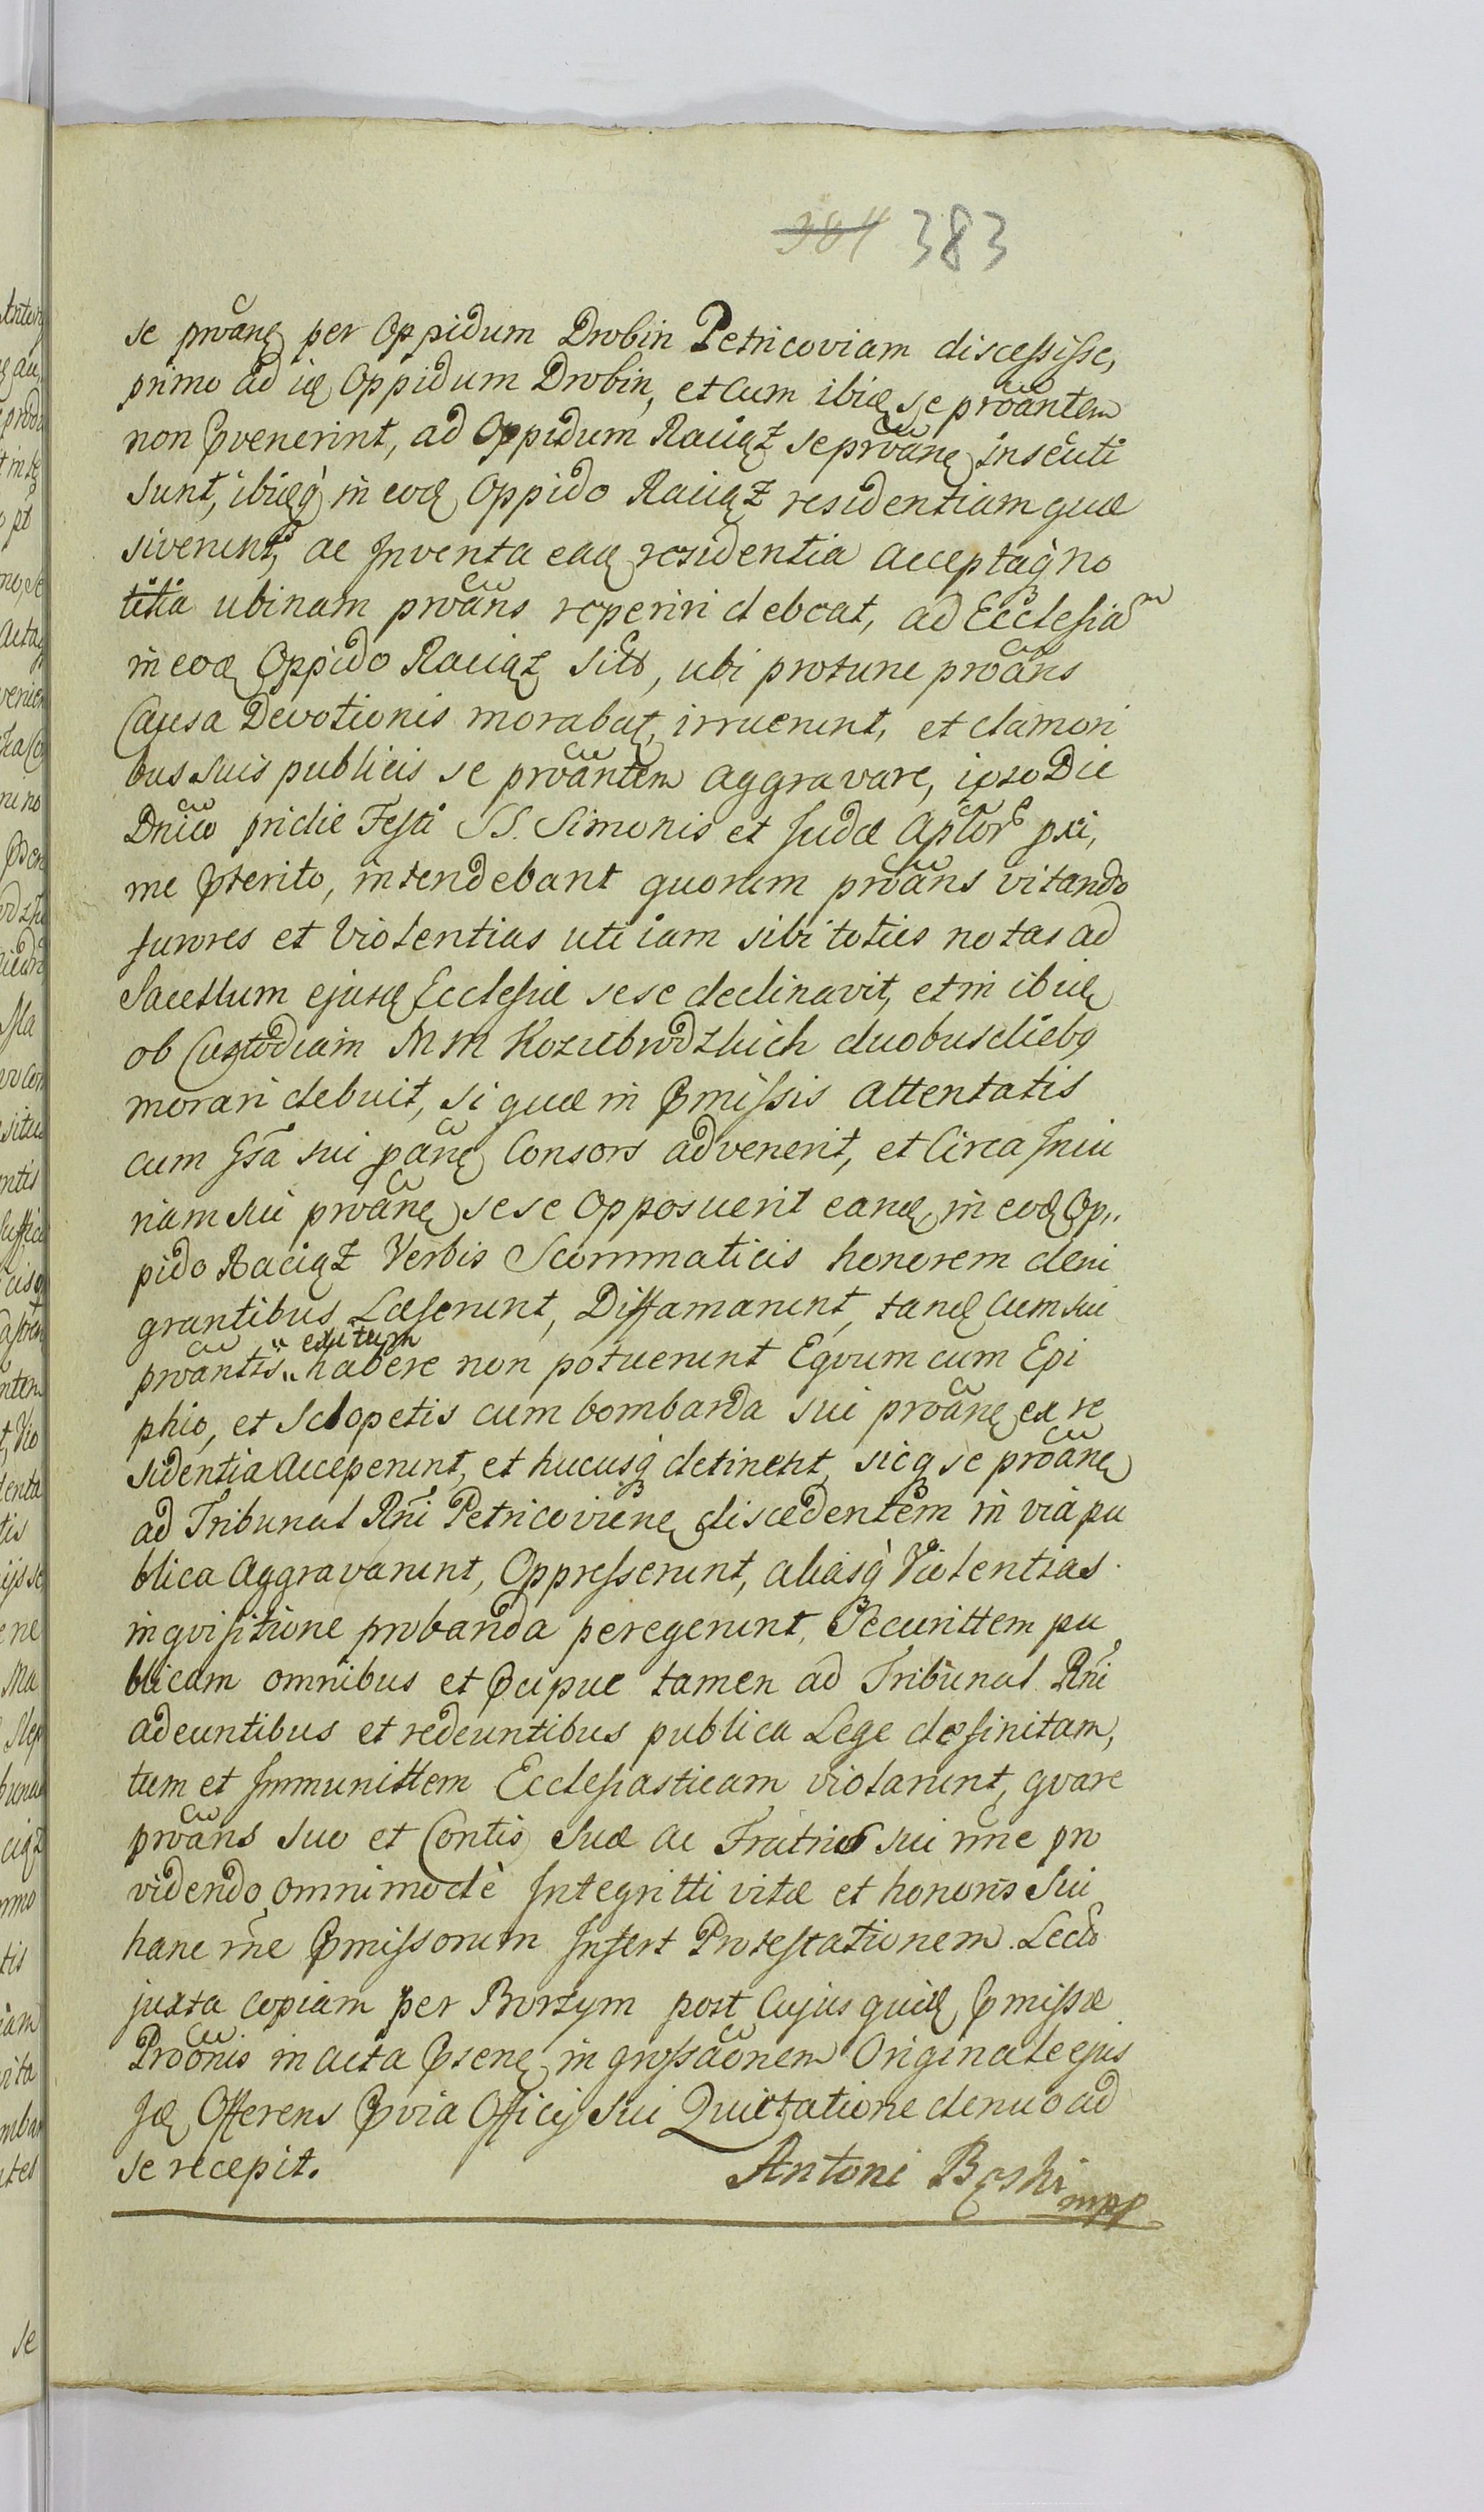 384 383
se proãnę per Oppidum Drobin Petricoviam discessisse,
primo ad idę Oppidum Drobin, et cum ibidę se proãntem
non pvenerint, ad Oppidum Raciąż se proãnę insecuti
sunt, ibidęq̀ in eodę Oppido Raciąż residentiam quæ
siverunt, ac Inventa eadę residentia acceptaq̀ no
titia ubinam proãns reperiri debeat, ad Ecclesiã
in eodę Oppido Raciąż sitã, ubi protunc proãns
Causa Devotionis morabatę, irruerunt, et clamori
bus suis publicis se proãntem aggravare, ipso Die
Dnico pridie Festi SS. Simonis et Judæ Aplor pxi,
me pterito, intendebant quorum proãns vitando
furores et Violentias uti iam sibi toties notas ad
Sacellum ejusdę Ecclesiæ sese declinavit, et in ibidę
ob Custodiam MM Koziebrodzkich duobus diebq
morari debuit, si quæ in pmissis attentatis
cum Gsã sui pãnę Consors advenerit, et Circa Iniu
riam sui proãnę sese Opposuerit eandę in eodę Op,,
pido Raciąż Verbis Scommaticis honorem deni
grantibus Læserunt, Diffamarunt, tandę cum sui
proantis,, exitum
habere non potuerunt Equum cum Epi
phio, et Sclopetis cum bombarda sui proãnę ex re
sidentia acceperunt, et hucusq̀ detinent, sicq se proãnę
ad Tribunal Rñi Petricovienę discedentem in via pu
blica Aggravarunt, Oppresserunt, aliasq̀ Violentias
inquisitione probanda peregerunt, Securittem pu
blicam omnibus et pcipue tamen ad Tribunal Rñi
adeuntibus et redeuntibus publica Lege definitam,
tum et Immunittem Ecclesiasticam violarunt, quare
proãns suo et Contis suæ ac Fratris sui nñe pro
videndo omnimodè Integritti vitæ et honoris sui
hanc rñe pmissorum Infert Protestationem. Lecto
juxta copiam per Borzym post Cujus quidę pmissæ
Proonis in acta psenę ingrossãonem Originale ejus
dę Offerens pvia Officij sui Quietatione denuo ad
se recepit.
Antoni Bęski mpp